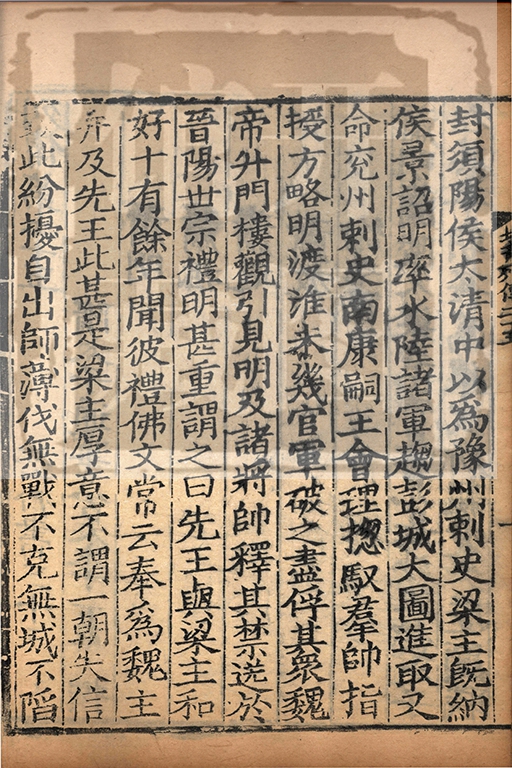 封須陽侯大清中以爲豫州刺史梁主旣納
侯景詔明率水陸諸軍趨彭城大圖進取又
命兖州刺史南康嗣王會理揔馭羣帥指
授方略明渡淮未幾官軍破之盡俘其衆魏
帝升門樓觀引見明及諸將帥釋其禁送於
晉陽世宗禮明甚重謂之曰先王與梁主和
好十有餘年聞彼禮佛文常云奉爲魏主
并及先王此甚是梁主厚意不謂一朝失信
致此紛擾自出師薄伐無戰不克無城不陷